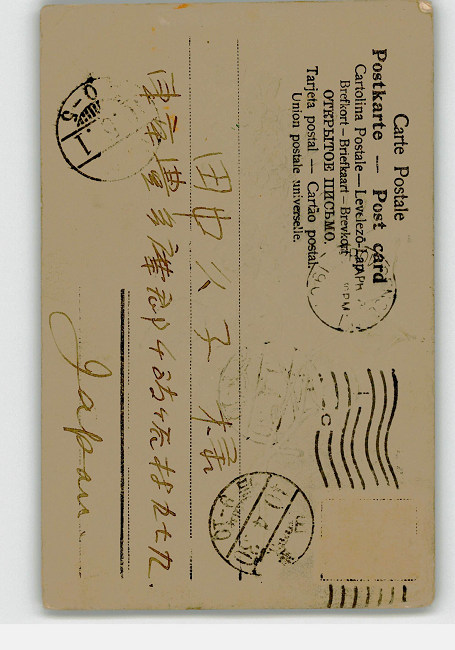 Carte Postale
Postkarte — Post card
Cartolina Postale — Levelező-Lap
Brefkort — Briefkaart — Brevkort
ОТКРЫТОЕ ПИСЬМО.
Tarjeta postal — Cartão postal.
Union postale universelle.
田中久子様
東京豊多摩郡千駄ヶ谷村九七九.
Japan